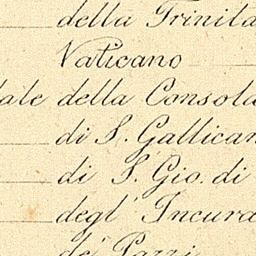 della Trinita
Vaticano
dale della Consola
di S. Gallican
di S. Gio. di
degl' Incura
de' Pazzi